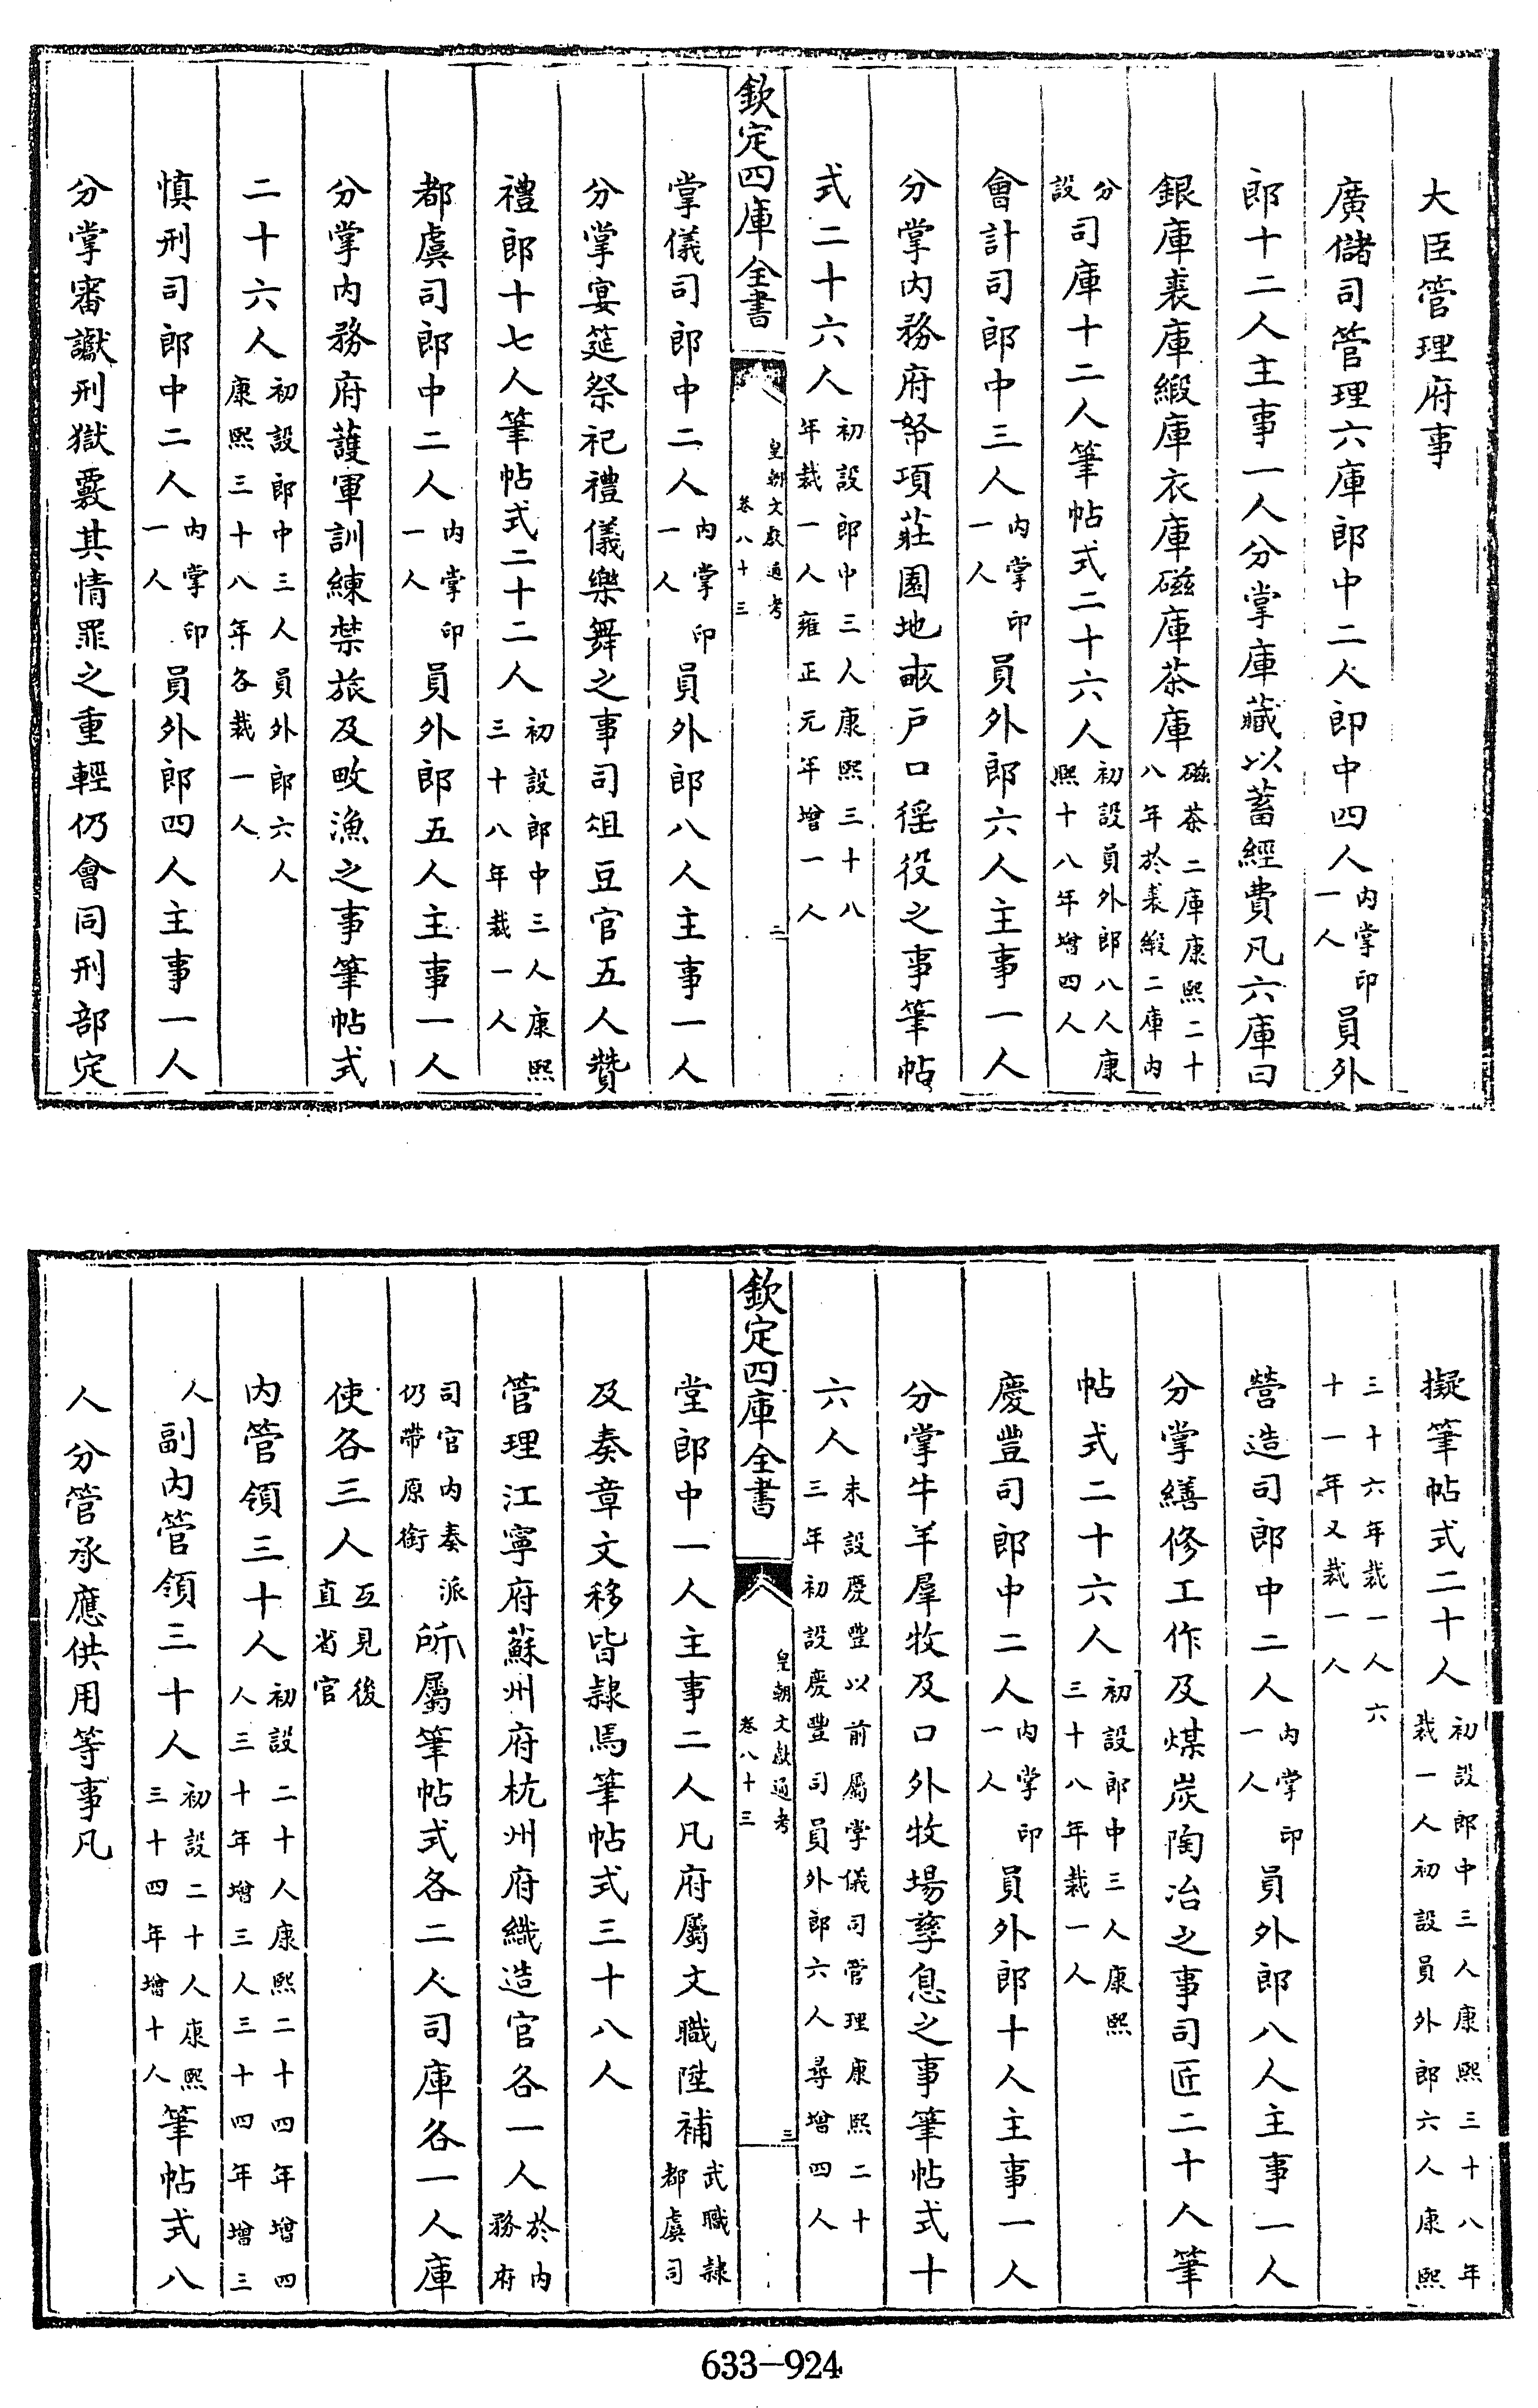 大臣管理府事
廣儲司管理六庫郎中二人郎中四人内掌印一人員外
郎十二人主事一人分掌庫藏以蓄經費凡六庫曰
銀庫裘庫緞庫衣庫磁庫茶庫磁茶二庫康熙二十八年於裘緞二庫内
分設司庫十二人筆帖式二十六人初設員外郎八人康熙十八年增四人
會計司郎中三人内掌印一人員外郎六人主事一人
分掌内務府帑項莊園地畝戸口徭役之事筆帖
式二十六人初設郎中三人康熙三十八年裁一人雍正元年增一人
欽定四庫全書
皇朝文獻通考
卷八十三
二
掌儀司郎中二人内掌印一人員外郎八人主事一人
分掌宴筵祭祀禮儀樂舞之事司俎豆官五人贊
禮郎十七人筆帖式二十二人初設郎中三人康熙三十八年裁一人
都虞司郎中二人内掌印一人員外郎五人主事一人
分掌内務府護軍訓練禁旅及畋漁之事筆帖式
二十六人初設郎中三人員外郎六人康熙三十八年各裁一人
慎刑司郎中二人内掌印一人員外郎四人主事一人
分掌審讞刑獄覈其情罪之重輕仍會同刑部定
擬筆帖式二十人初設郎中三人康熙三十八年裁一人初設員外郎六人康熙
三十六年裁一人六十一年又裁一人
營造司郎中二人内掌印一人員外郎八人主事一人
分掌繕修工作及煤炭陶冶之事司匠二十人筆
帖式二十六人初設郎中三人康熙三十八年裁一人
慶豐司郎中二人内掌印一人員外郎十人主事一人
分掌牛羊羣牧及口外牧場孳息之事筆帖式十
六人未設慶豐以前屬掌儀司管理康熙二十三年初設慶豐司員外郎六人尋增四人
欽定四庫全書
皇朝文獻通考
卷八十三
三
堂郎中一人主事二人凡府屬文職陞補武職隸都虞司
及奏章文移皆隸焉筆帖式三十八人
管理江寧府蘇州府杭州府織造官各一人於内務府
司官内奏派仍帶原銜所屬筆帖式各二人司庫各一人庫
使各三人互見後直省官
内管領三十人初設二十人康熙二十四年增四人三十年增三人三十四年增三
人副内管領三十人初設二十人康熙三十四年增十人筆帖式八
人分管承應供用等事凡
633-924